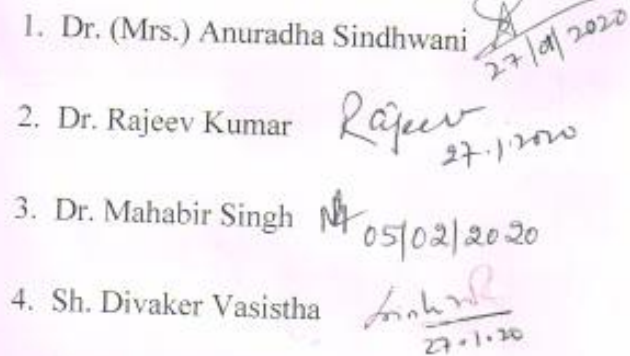 1. Dr. (Mrs.) Anuradha Sindhwani 27/01/2020
2. Dr. Rajeev Kumar Rajeev 27.1.2020
3. Dr. Mahabir Singh 05/02/2020
4. Sh. Divaker Vasistha 27.1.20